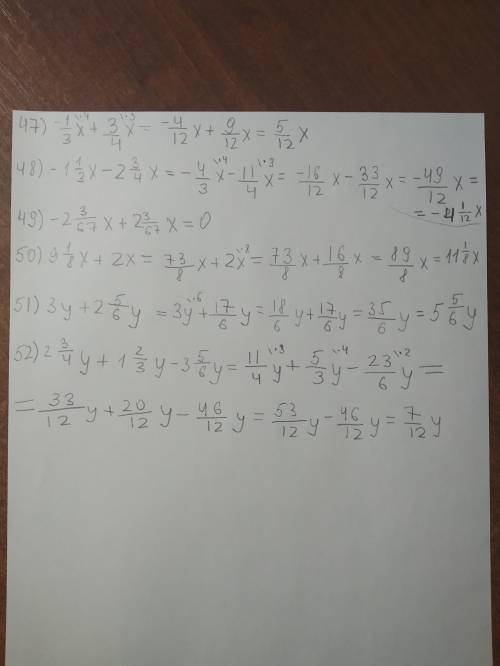 47) -1/3 x \·4 + 3/4 x \·3 = -4/12 x + 9/12 x = 5/12 x
48) -1 1/3 x - 2 3/4 x = -4/3 x \·4 - 11/4 x \·3 = -16/12 x - 33/12 x = -49/12 x =
= -4 1/12 x
49) -2 3/67 x + 2 3/67 x = 0
50) 9 1/8 x + 2x = 73/8 x + 2x \·8 = 73/8 x + 16/8 x = 89/8 x = 11 1/8 x
51) 3y + 2 5/6 y = 3y \·6 + 17/6 y = 18/6 y + 17/6 y = 35/6 y = 5 5/6 y
52) 2 3/4 y + 1 2/3 y - 3 5/6 y = 11/4 y \·3 + 5/3 y \·4 - 23/6 y \·2 =
= 33/12 y + 20/12 y - 46/12 y = 53/12 y - 46/12 y = 7/12 y